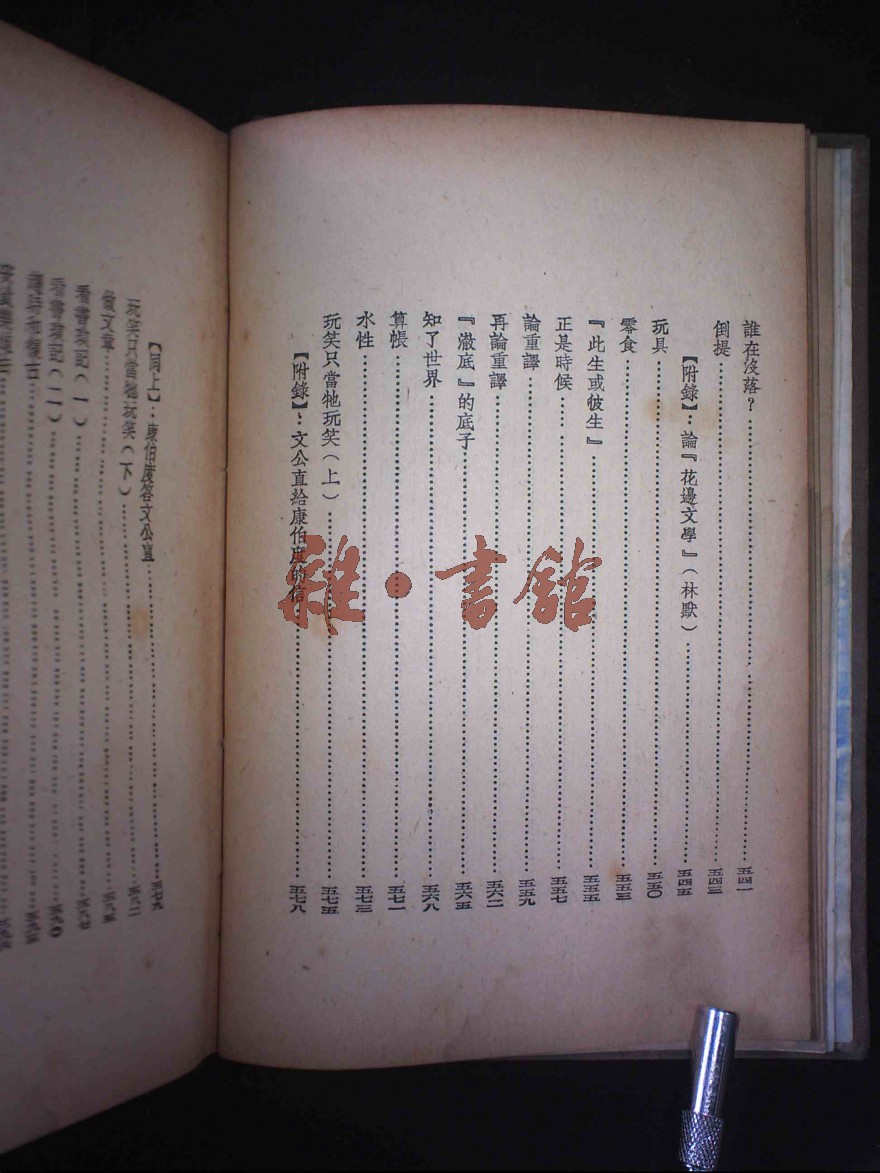 誰在沒落？……五四一
倒提……五四三
【附錄】：論『花邊文學』（林默）……五四五
玩具……五五〇
零食……五五三
『此生或彼生』……五五五
正是時候……五五七
論重譯……五五九
再論重譯……五六二
『澈底』的底子……五六五
知了世界……五六八
算帳……五七一
水性……五七三
玩笑只當牠玩笑（上）……五七五
【附錄】：文公直給康伯度的信……五七八
【同上】：康伯度答文公直……五七九
玩笑只當牠玩笑（下）……五八一
做文章……
看書瑣記（一）……
看書瑣記（二）……
雜·書館